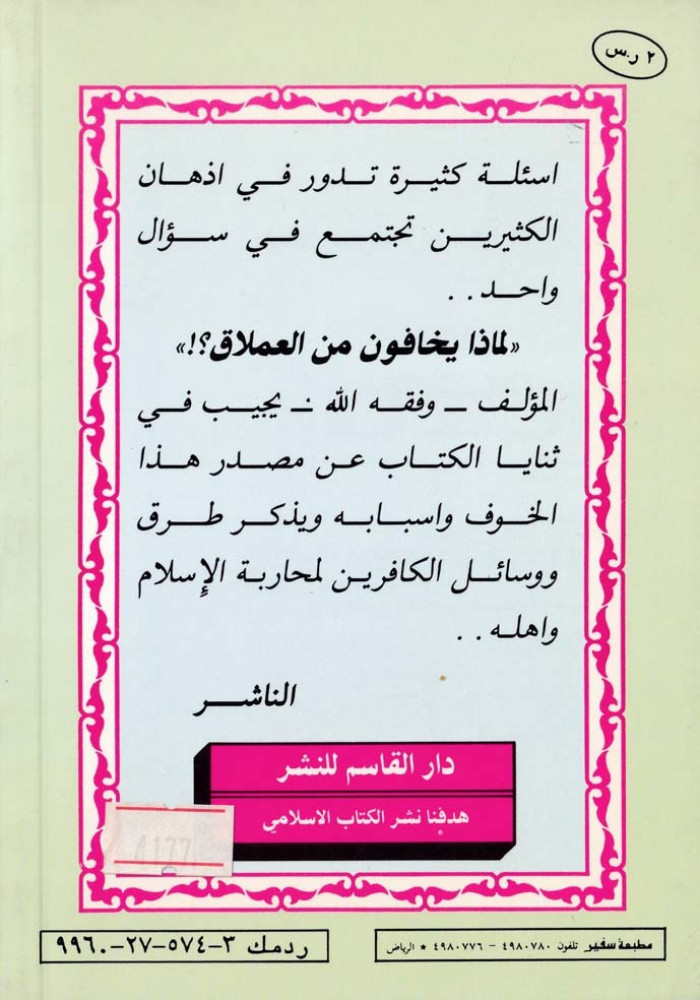 ٢ ر.س
اسئلة كثيرة تدور في اذهان
الكثيرين تجتمع في سؤال
واحد . .
«لماذا يخافون من العملاق؟!»
المؤلف ـ وفقه الله ـ يجيب في
ثنايا الكتاب عن مصدر هذا
الخوف واسبابه ويذكر طرق
ووسائل الكافرين لمحاربة الإسلام
واهله . .
الناشر
دار القاسم للنشر
هدفنا نشر الكتاب الاسلامي
4177
مطبعة سفير تلفون ٤٩٨٠٧٨٠ - ٤٩٨٠٧٧٦ * الرياض
ردمك ٣-٥٧٤-٢٧-٩٩٦٠